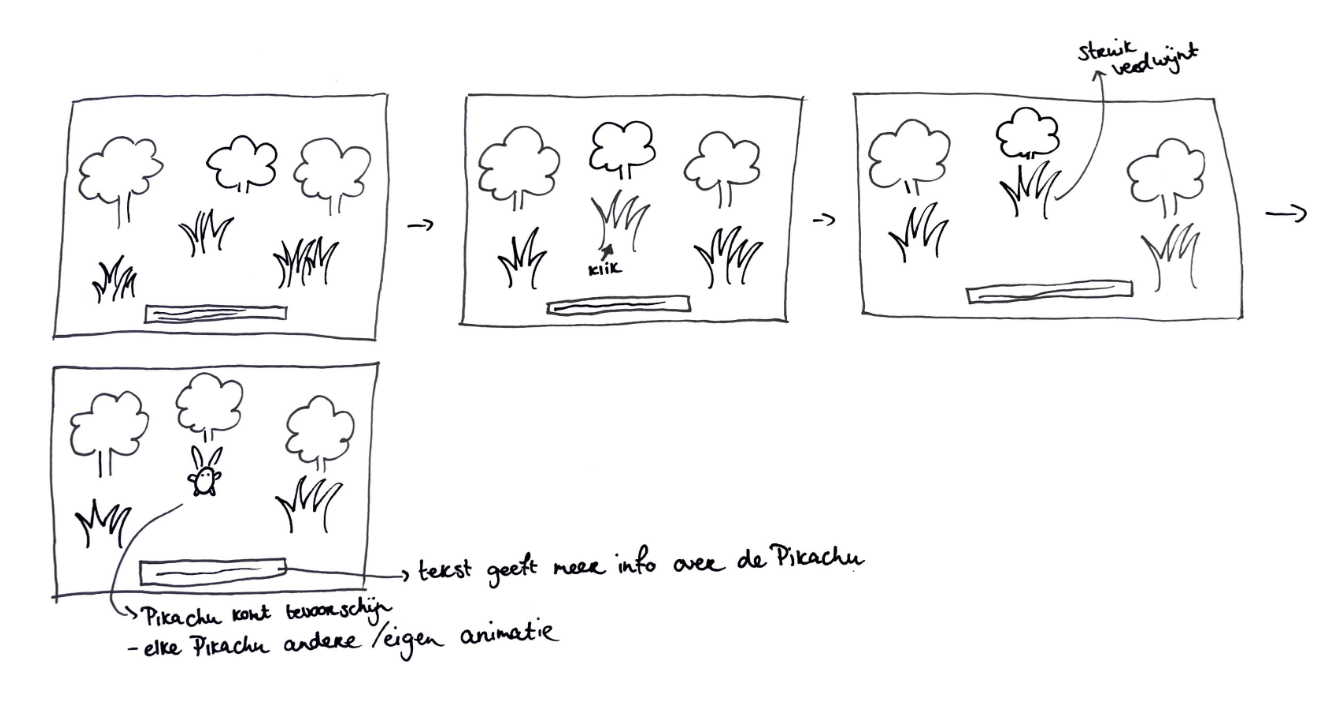 struik
verdwijnt
klik
tekst geeft meer info over de Pikachu
Pikachu komt tevoorschijn
- elke Pikachu andere/eigen animatie